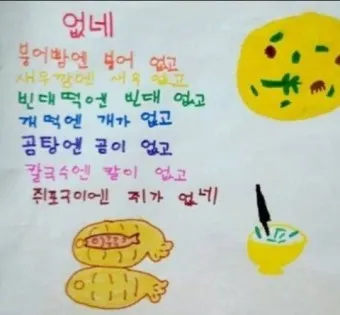 없네
붕어빵엔 붕어 없고
새우깡엔 새우 없고
빈대떡엔 빈대 없고
개떡엔 개가 없고
곰탕엔 곰이 없고
칼국수엔 칼이 없고
쥐포구이엔 쥐가 없네